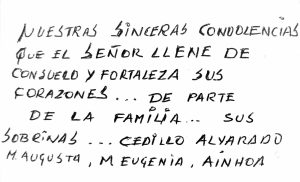 NUESTRAS SINCERAS CONDOLENCIAS
QUE EL SEÑOR LLENE DE
CONSUELO Y FORTALEZA SUS
CORAZONES... DE PARTE
DE LA FAMILIA... SUS
SOBRINAS... CEDILLO ALVARADO
M. AUGUSTA, M EUGENIA, AINHOA